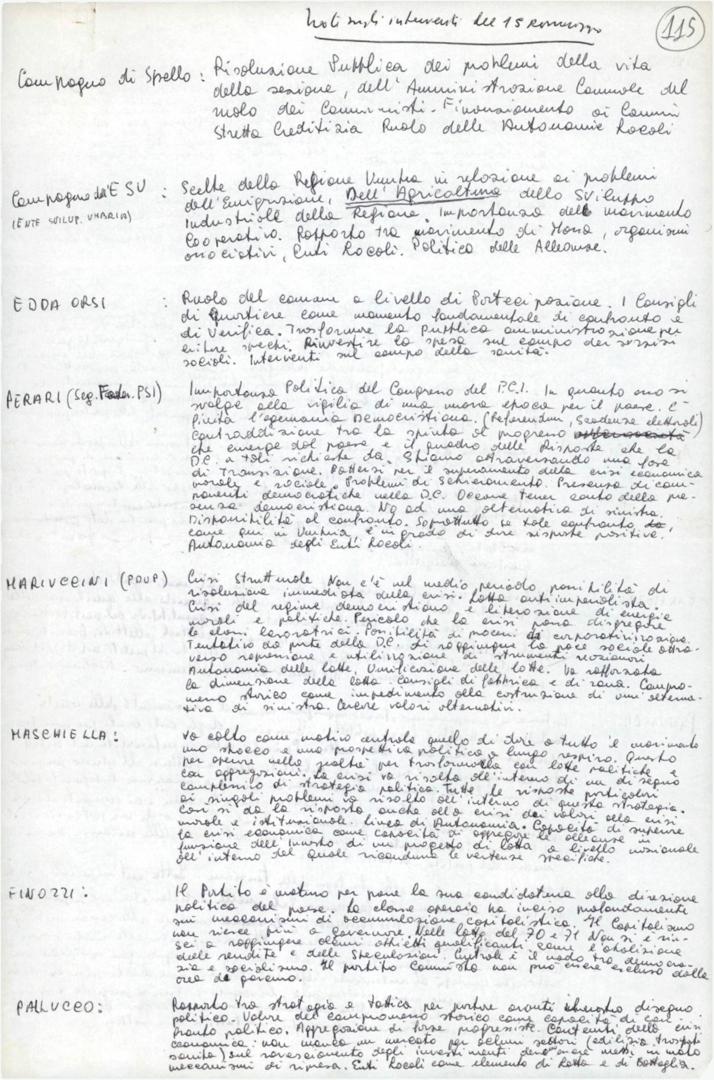 Note sugli interventi del 15
115
Compagno di Spello : Risoluzione Pubblica dei problemi della vita
della sezione, dell'Amministrazione Comunale del
ruolo dei Comunisti - Finanziamento ai Comuni
Stretta Creditizia Ruolo delle Autonomie Locali
Compagno dell'ESU : Scelte della Regione Umbria in relazione ai problemi
(ENTE SVILUP. UMBRIA) dell'Emigrazione, Dell'Agricoltura dello Sviluppo
Industriale della Regione. Importanza del movimento
Cooperativo. Rapporto tra movimento di Massa, organismi
associativi, Enti Locali. Politica delle Alleanze.
EDDA ORSI : Ruolo del comune a livello di Partecipazione. I Consigli
di quartiere come momento fondamentale di confronto e
di Verifica. Trasformare la pubblica amministrazione per
evitare sprechi. Rinvestire la spesa sul campo dei servizi
sociali. Interventi sul campo della sanità.
PERARI (Seg. Feder. PSI) Importanza Politica del Congresso del P.C.I. In quanto esso si
svolge alla vigilia di una nuova epoca per il paese. E'
finita l'egemonia Democristiana. (Referendum, Scadenze elettorali)
Contraddizione tra la spinta al progresso
che emerge dal paese e il quadro delle Risposte che la
DC a tali richieste da. Stiamo attraversando una fase
di Transizione. Battersi per il superamento della crisi economica
morale e sociale. Problemi di Schieramento. Presenza di com-
ponenti democratiche nella D.C. Occorre tener conto della pre-
senza democristiana. No ad una alternativa di sinistra.
Disponibilità al confronto. Soprattutto se tale confronto,
come qui in Umbria, è in grado di dare risposte positive.
Autonomia degli Enti Locali.
MARIUCCINI (PDUP) Crisi Strutturale Non c'è nel medio periodo possibilità di
risoluzione immediata della crisi. Lotta antimperialista.
Crisi del regime democristiano e liberazione di energie
morali e politiche. Pericolo che la crisi possa disgregare
le classi lavoratrici. Possibilità di processi di corporativizzazione.
Tentativo da parte della D.C. di raggiungere la pace sociale attra-
verso repressione e utilizzazione di strumenti reazionari
Autonomia delle lotte. Unificazione delle lotte. Va rafforzata
la dimensione della lotta. Consigli di fabbrica e di zona. Compro-
messo storico come impedimento alla costruzione di una alterna-
tiva di sinistra. Cercare valori alternativi.
MASCHIELLA : Va colto come motivo centrale quello di dare a tutto il movimento
uno sbocco e una prospettiva politica a lungo respiro. Questo
per operare nella realtà per trasformarla con lotte politiche e
con aggregazioni. La crisi va risolta all'interno di un disegno
complessivo di strategia politica. Tutte le risposte particolari
ai singoli problemi va risolto all'interno di questa strategia.
Così si da la risposta anche alla crisi dei valori alla crisi
morale e istituzionale. Linea di Autonomia. Capacità di superare
la crisi economica come capacità di aggregare le alleanze in
funzione dell'innesto di un progetto di lotta a livello nazionale
all'interno del quale ricondurre le vertenze specifiche.
FINOZZI : Il Partito è maturo per porre la sua candidatura alla direzione
politica del paese. La classe operaia ha inciso profondamente
sui meccanismi di accumulazione capitalistica. Il Capitalismo
non riesce più a governare. Nelle lotte del 70 e 71 Non si è riu-
sci a raggiungere alcuni obbietti qualificanti come l'abolizione
delle rendite e delle Speculazioni. Centrale è il nodo tra democra-
zia e socialismo. Il partito Comunista non può essere escluso dalla
area di governo.
PALLUCCO : Rapporto tra strategia e tattica per portare avanti disegno
politico. Valore del compromesso storico come capacità di con-
fronto politico. Aggregazione di forze progressiste. Contenuti della crisi
economica : non manca un mercato per alcuni settori (edilizia, trasporti
sanità) sul rovesciamento degli investimenti devono essere messi in moto
meccanismi di ripresa. Enti Locali come elemento di Lotta e di Battaglia.